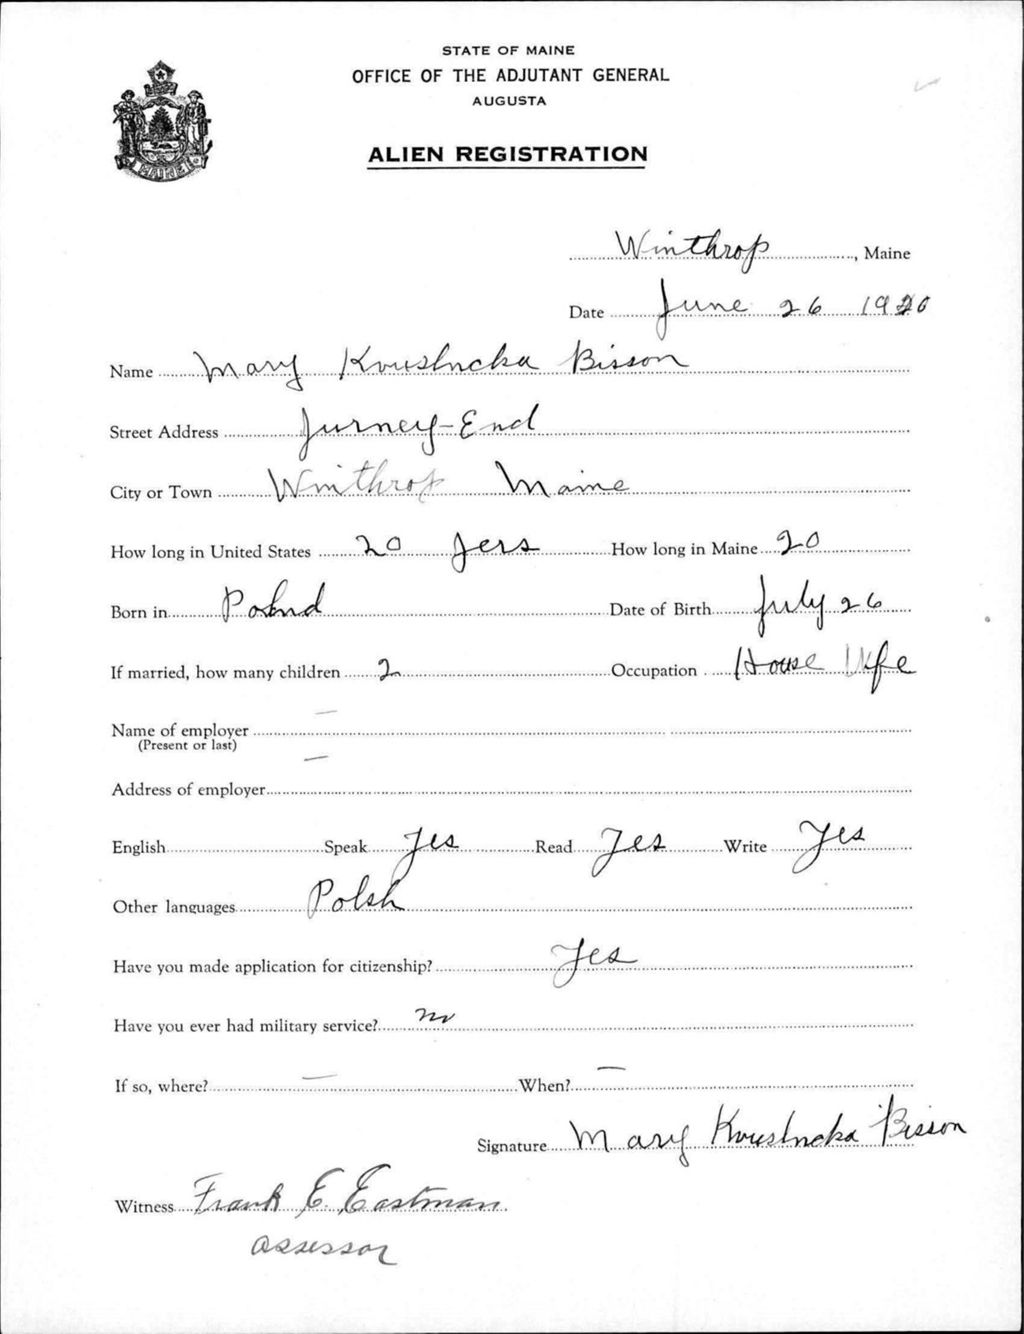 STATE OF MAINE
OFFICE OF THE ADJUTANT GENERAL
AUGUSTA
ALIEN REGISTRATION
Winthrop, Maine
Date June 26 1940
Name Mary Kvuslncka Bisson
Street Address Jurney-End
City or Town Winthrop Maine
How long in United States 20 yers How long in Maine 20
Born in Polnd Date of Birth July 26
If married, how many children 2 Occupation House Wife
Name of employer —
(Present or last)
Address of employer —
English Speak Yes Read Yes Write Yes
Other languages Polsh
Have you made application for citizenship? Yes
Have you ever had military service? no
If so, where? — When? —
Signature Mary Kvuslncka Bisson
Witness Frank E. Eastman
assessor